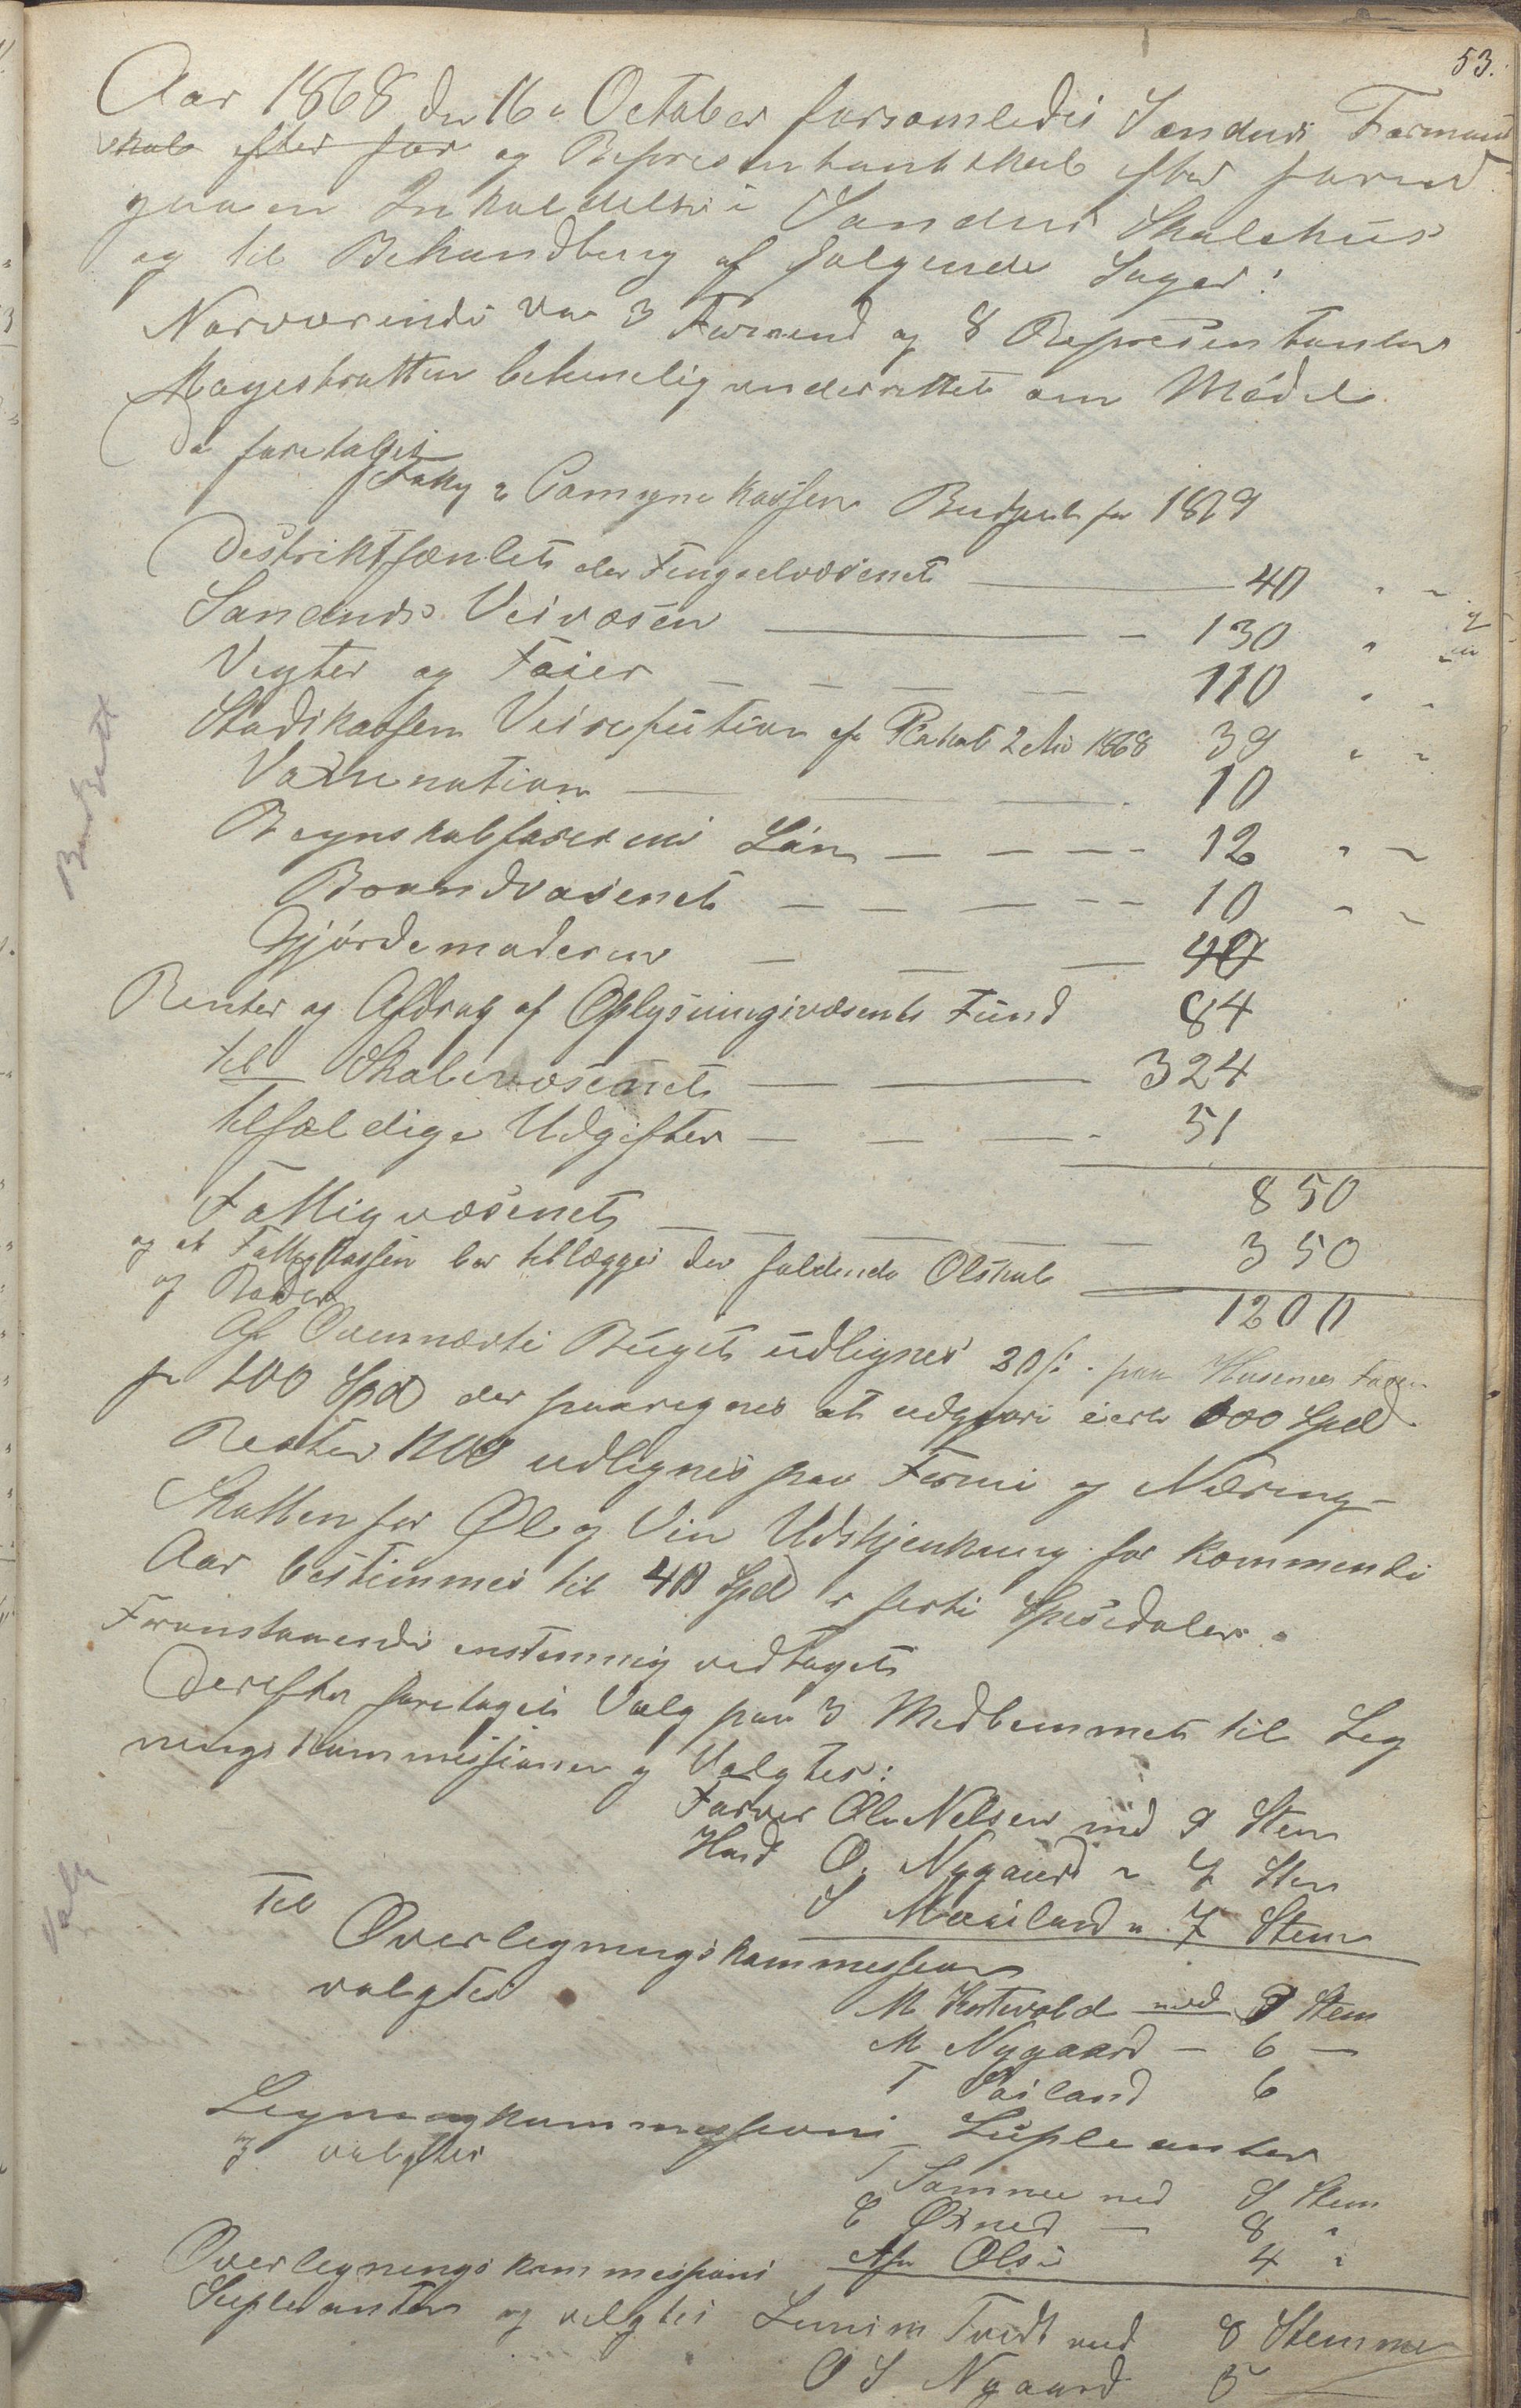 53.
Aar 1868 den 16 October forsamledes Sandnes Formand
skab efter for og Representantskab efter forud
gaaen Inkaldelse i Sandnes Skolehus
og til Behandling af følgende Sager:
Nærværende var 3 Formend og 8 Representanter
Magestratten behørelig underrettet om Mødet
Da foretages
Comune Kassens Budget for 1869
Destriktfænlets der Fengselvæsenet 40
Sandnes Veivæsen 130
Vegter og Feier 110
Stadskassen Veirefution 1868 39
Vaxination 10
Regnskabførerens Løn 12
Brandvæsenet 10
Gjordemoderen 40
Renter og Afdrag af Oplysningsvæsents Fund 84
til Skolevæsenet 324
tilfældige Udgifter 51
850
Fattigvæsenet 350
og at Fattigkassen bør tillægges den faldende Olskat
og Bøder
1200
Af Ovennævte Buget udlignes 20 ß. paa Husenes Taxt
pr 100 Spd der paaregnes at udgjøre 100 Spd
Resten udlignes paa Formue og Næring
Skatten for Øl og Vin Udskjenkning for kommende
Aar bestemmes til 40 Spd førti Spesidaler.
Foranstaaende enstemmig vedtaget
Derefter foretages Valg paa 3 Medlemmer til Leg
nings kommissionen og Valgtes:
Farver Ole Nelsen med 9 Stem
Hand O. Nygaard " 7 Stem
S Moiland " 7 Stem
Til
Overlegningskommession
valgtes
M Hertvold med 9 Stem
M Nygaard - 6 -
T Soiland 6
Legningkommessions Supleanter
og valgtes
T Somme med 9 Stem
E Øxned - 8 "
Asb Olsen 4 "
Overlegnings kommessions
Supleanter og velgtes Tvedt med 8 Stemmer
O S Nygaard 5
Budgett
Valg